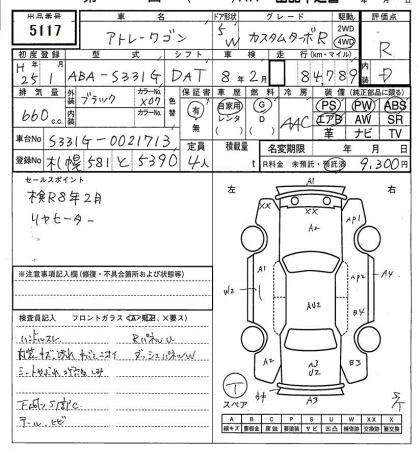 出品番号
5117
車名
アトレーワゴン
ドア形状
5
W
グレード
カスタムターボR
駆動
2WD
4WD
評価点
R
初度登録
H 25年 1月
型式
ABA-S331G
シフト
DAT
車検
8年 2月
走行 (km・マイル)
84789
内装
D
排気量
660 c.c.
外装 ブラック
カラーNo. X07
内装
カラーNo.
色替
保証書
有
無
車歴
自家用
レンタ
燃料
G
D
冷房
AAC
装備 (純正部品に限る)
PS PW ABS
エアB AW SR
革 ナビ TV
車台No S331G-0021713
定員
4人
積載量
t
名変期限 年 月 日
登録No 札幌 581 と 5390
R料金 未預託・預託済 9,300円
セールスポイント
検R8年2月
リヤヒーター
※注意事項記入欄 (修復・不具合箇所および状態等)
検査員記入 フロントガラス
ハンドルスレ
RパネルU
ダッシュパネルW
テールヒビ
左
右
A1
XX
XX
A2
AP1
A1
W2
AU2
AP2
A4
B4
A2
A3
U2
B3
A3
T
スペア
A B C P S U W X XX
線キズ 要板金 腐蝕 要塗装 サビ 凹凸 補修跡 交換跡 要交換